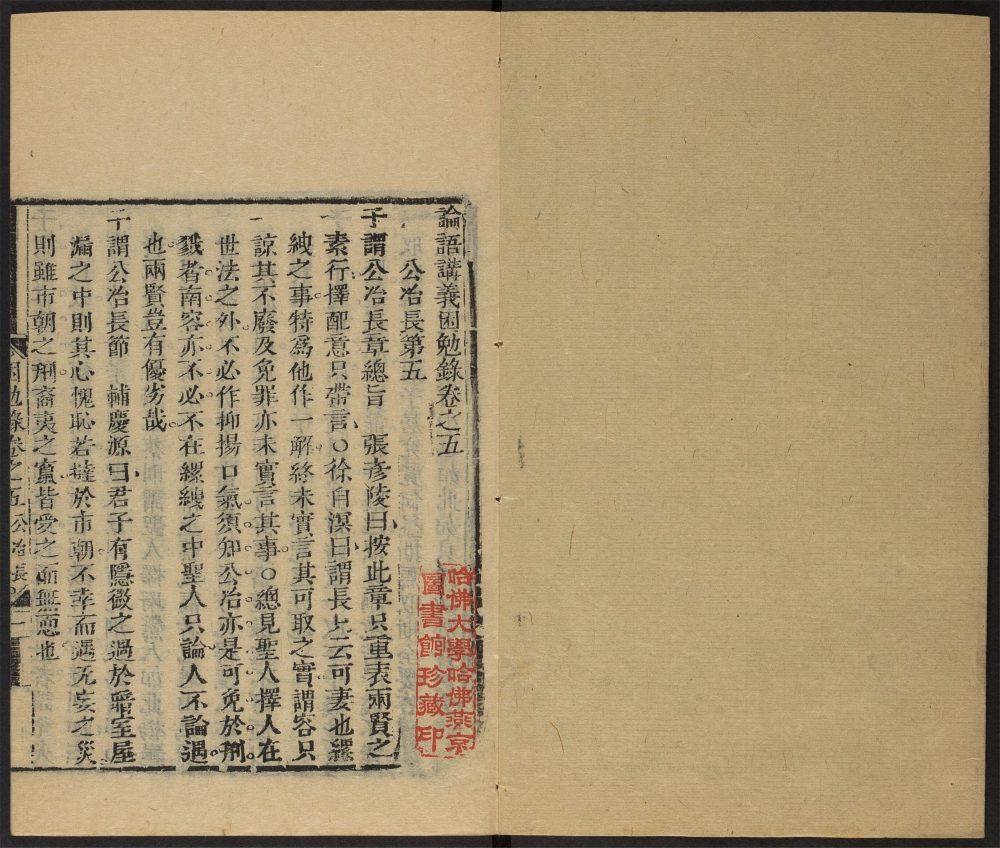 論語講義困勉錄卷之五
公冶長第五
子謂公冶長章總旨　張彥陵曰按此章只重表兩賢之
素行擇配意只帶言○徐自溟曰謂長上云可妻也縲
絏之事特為他作一解終未實言其可取之實謂容只
諒其不廢及免罪亦未實言其事○總見聖人擇人在
世法之外不必作抑揚口氣須知公冶亦是可免於刑
戮者南容亦不必不在縲絏之中聖人只論人不論遇
也兩賢豈有優劣哉
子謂公冶長節　輔慶源曰君子有隱微之過於暗室屋
漏之中則其心愧恥若撻於市朝不幸而遇无妄之災
則雖市朝之刑裔夷之竄皆受之而無慍也
困勉錄卷之五公冶長　一
哈佛大學哈佛燕京
圖書館珍藏印